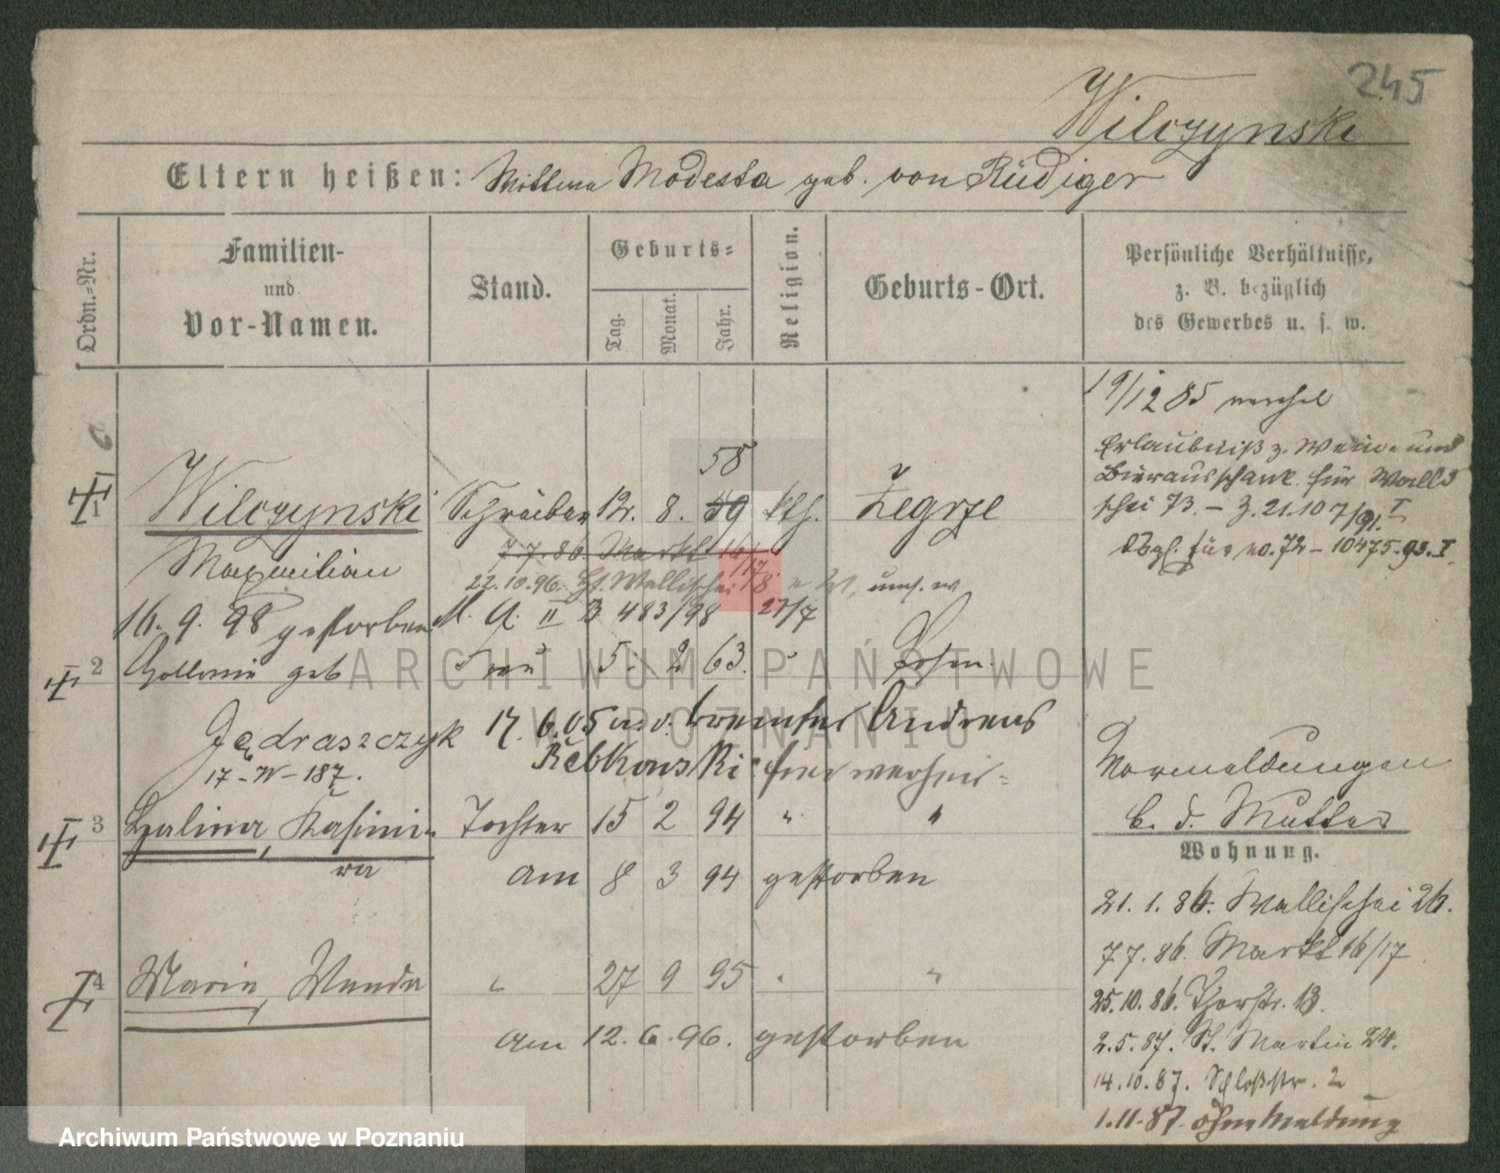 245
Wilczynski
Eltern heißen: Wittwe Modesta geb. von Rüdiger
Ordn.-Nr.
Familien-
und
Vor-Namen.
Stand.
Geburts-
Tag.
Monat.
Jahr.
Religion.
Geburts-Ort.
Persönliche Verhältnisse,
z. B. bezüglich
des Gewerbes u. s. w.
19/12 85
Erlaubniß z. Wein- und
Bierausschank für Walli-
schei 73. – Z. 21.10 7/91. I
Dsgl. für No. 72 – 10475. 93. I
58
1 Wilczynski Schreiber 12. 8. 59 kth. Zegrze
7.7.86. Markt 16/17.
Maximilian
22.10.96. Wallischei 78
16. 9. 98 gestorben M. A. II B 483/98 27/7
2 geb Frau 5. 2 63. Posen.
Jędraszczyk 17. 6. 05 Andreas
Rebkowski
17-IV-187.
3 Halina, Kasimi- Tochter 15 2 94 " "
ra am 8 3 94 gestorben
4 Maria, Wanda " 27 9 95 " "
am 12. 6. 96. gestorben
Vormeldungen
b. d. Mutter
Wohnung.
21. 1. 86. Wallischei 26.
7 7. 86. Markt 16/17
25.10. 86. Thorstr. 13.
2. 5. 87. St. Martin 24.
14.10.87. Schloßstr. 2
1.11.87. ohne Meldung
ARCHIWUM PAŃSTWOWE
W POZNANIU
Archiwum Państwowe w Poznaniu